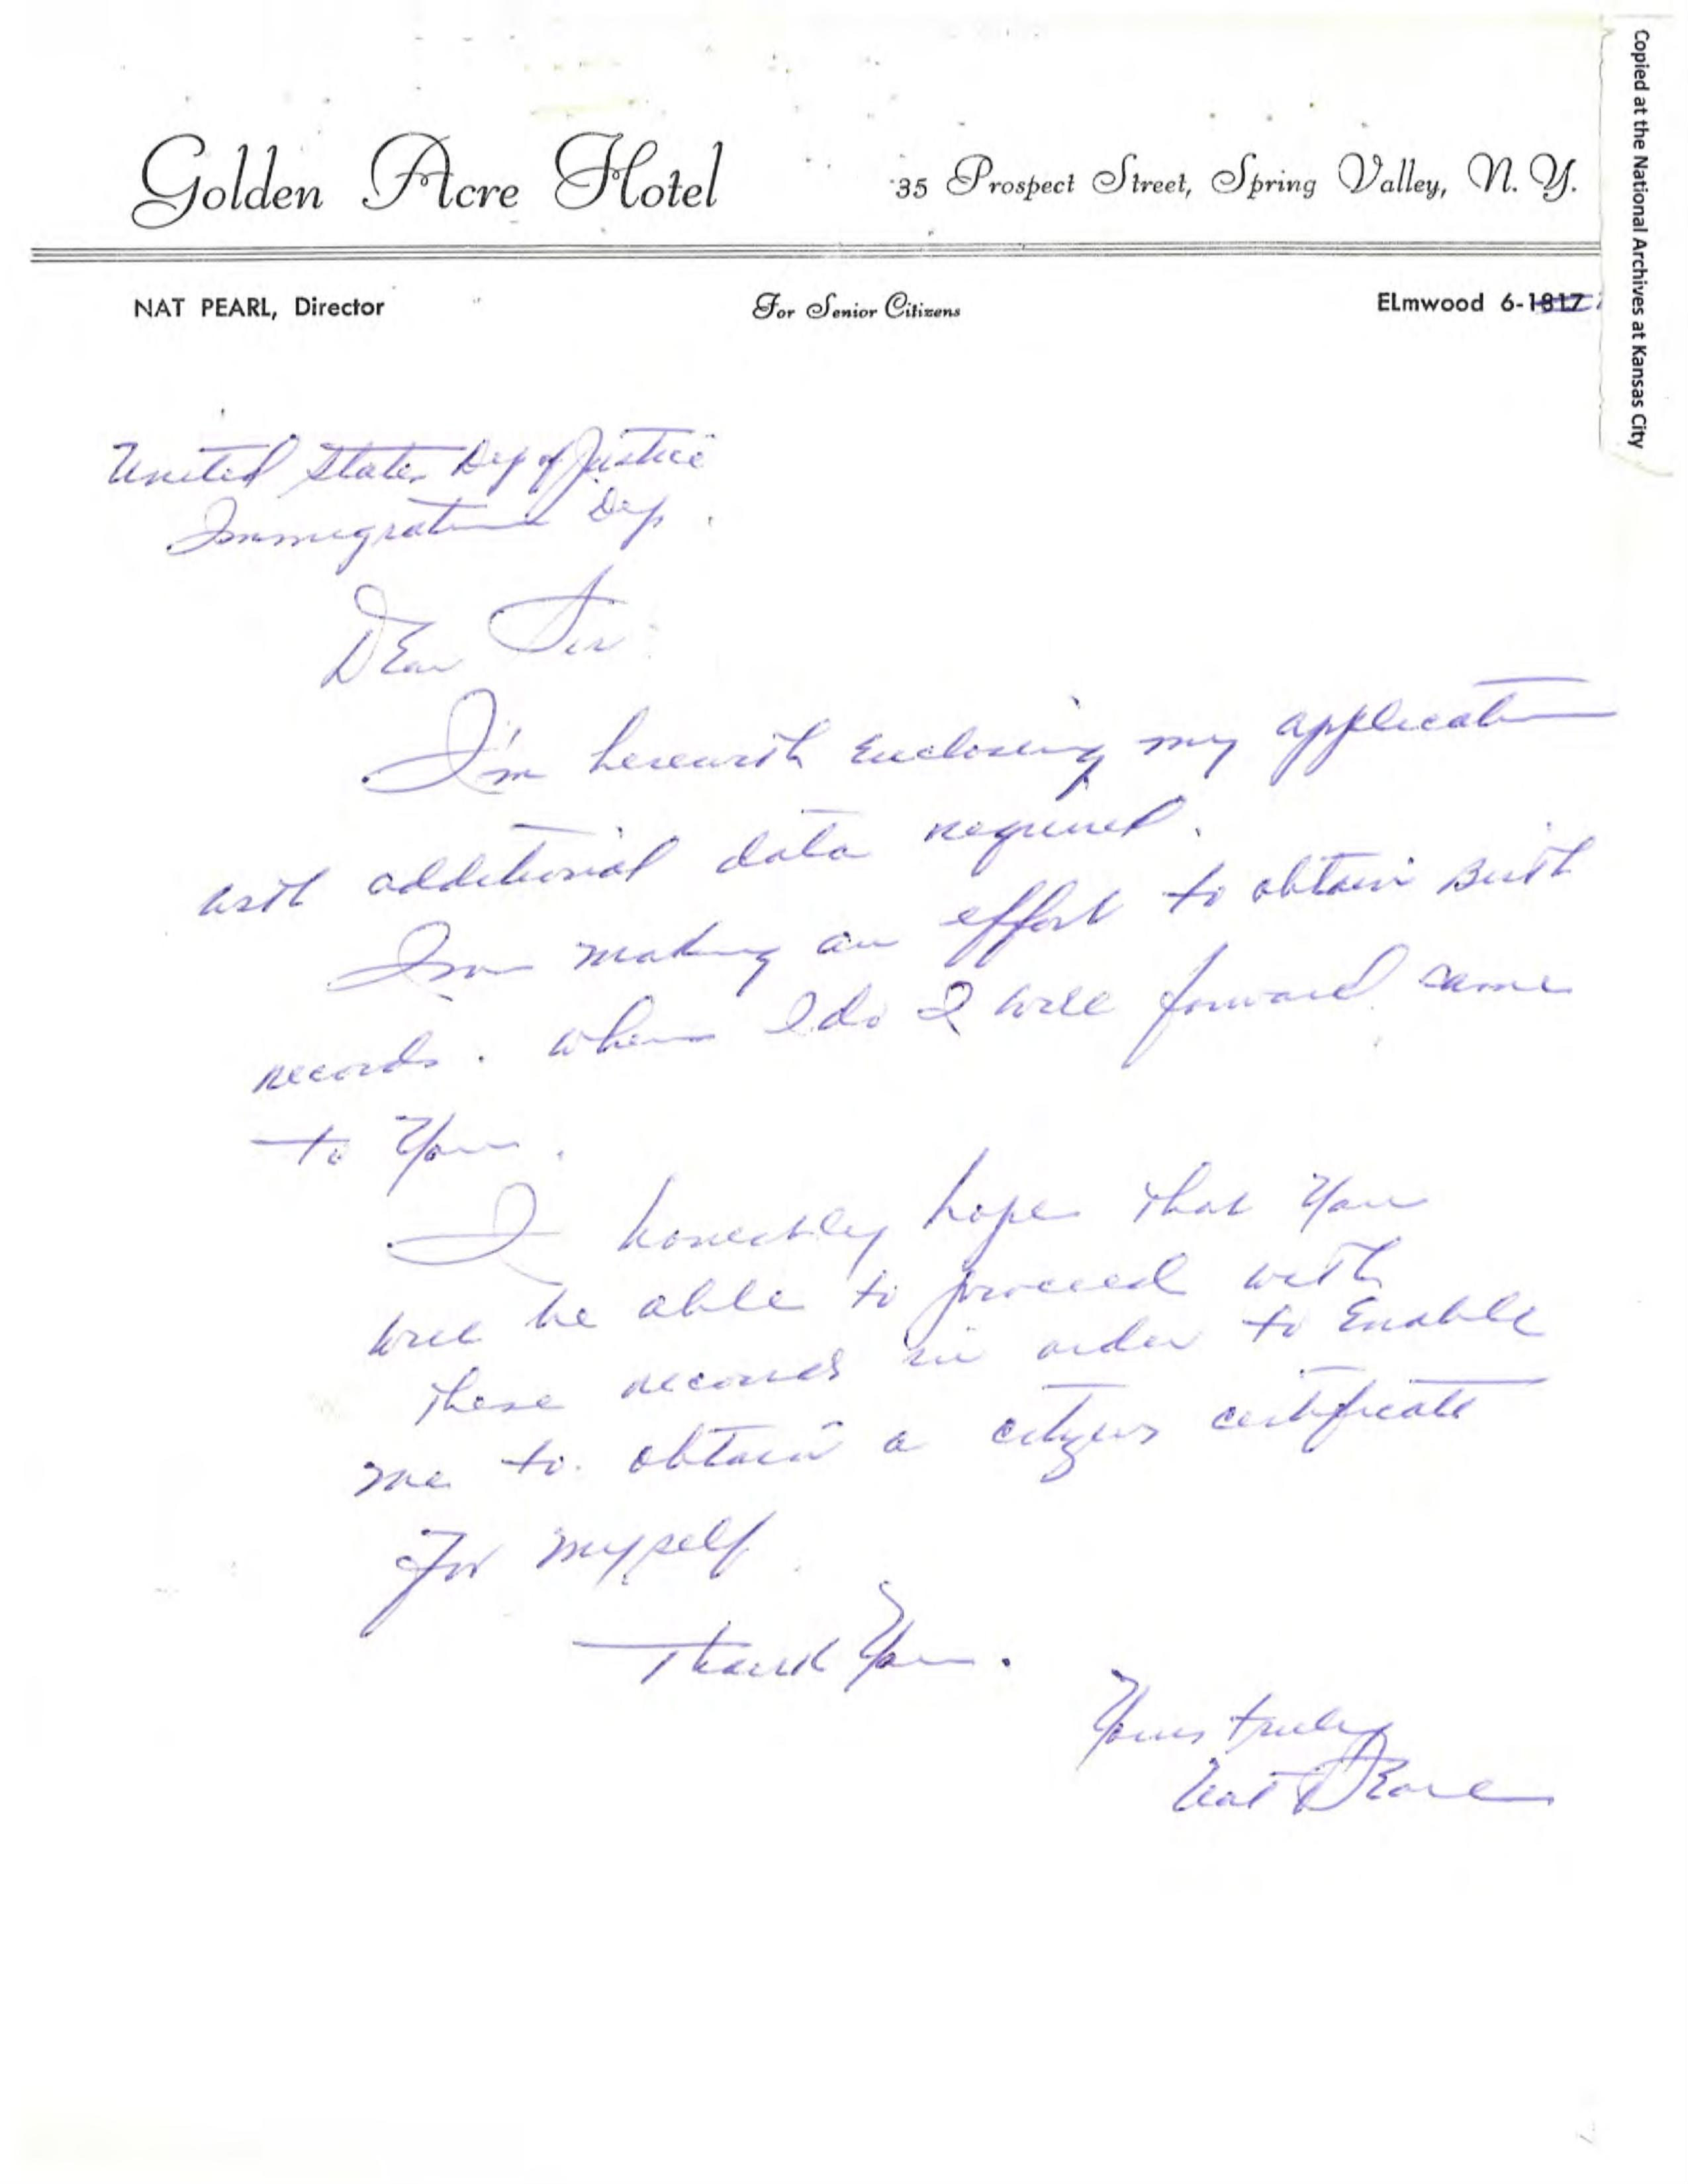 Golden Acre Hotel 35 Prospect Street, Spring Valley, N. Y.
NAT PEARL, Director For Senior Citizens ELmwood 6-1817
Copied at the National Archives at Kansas City
United States Dep of Justice
Immigration Dep.
Dear Sir:
I'm herewith enclosing my application
with additional data required.
I'm making an effort to obtain Birth
records. When I do I will forward same
to You.
I honestly hope that You
will be able to proceed with
these records in order to Enable
me to obtain a citizens certificate
For myself.
Thank You.
Yours truly
Nat Pearl